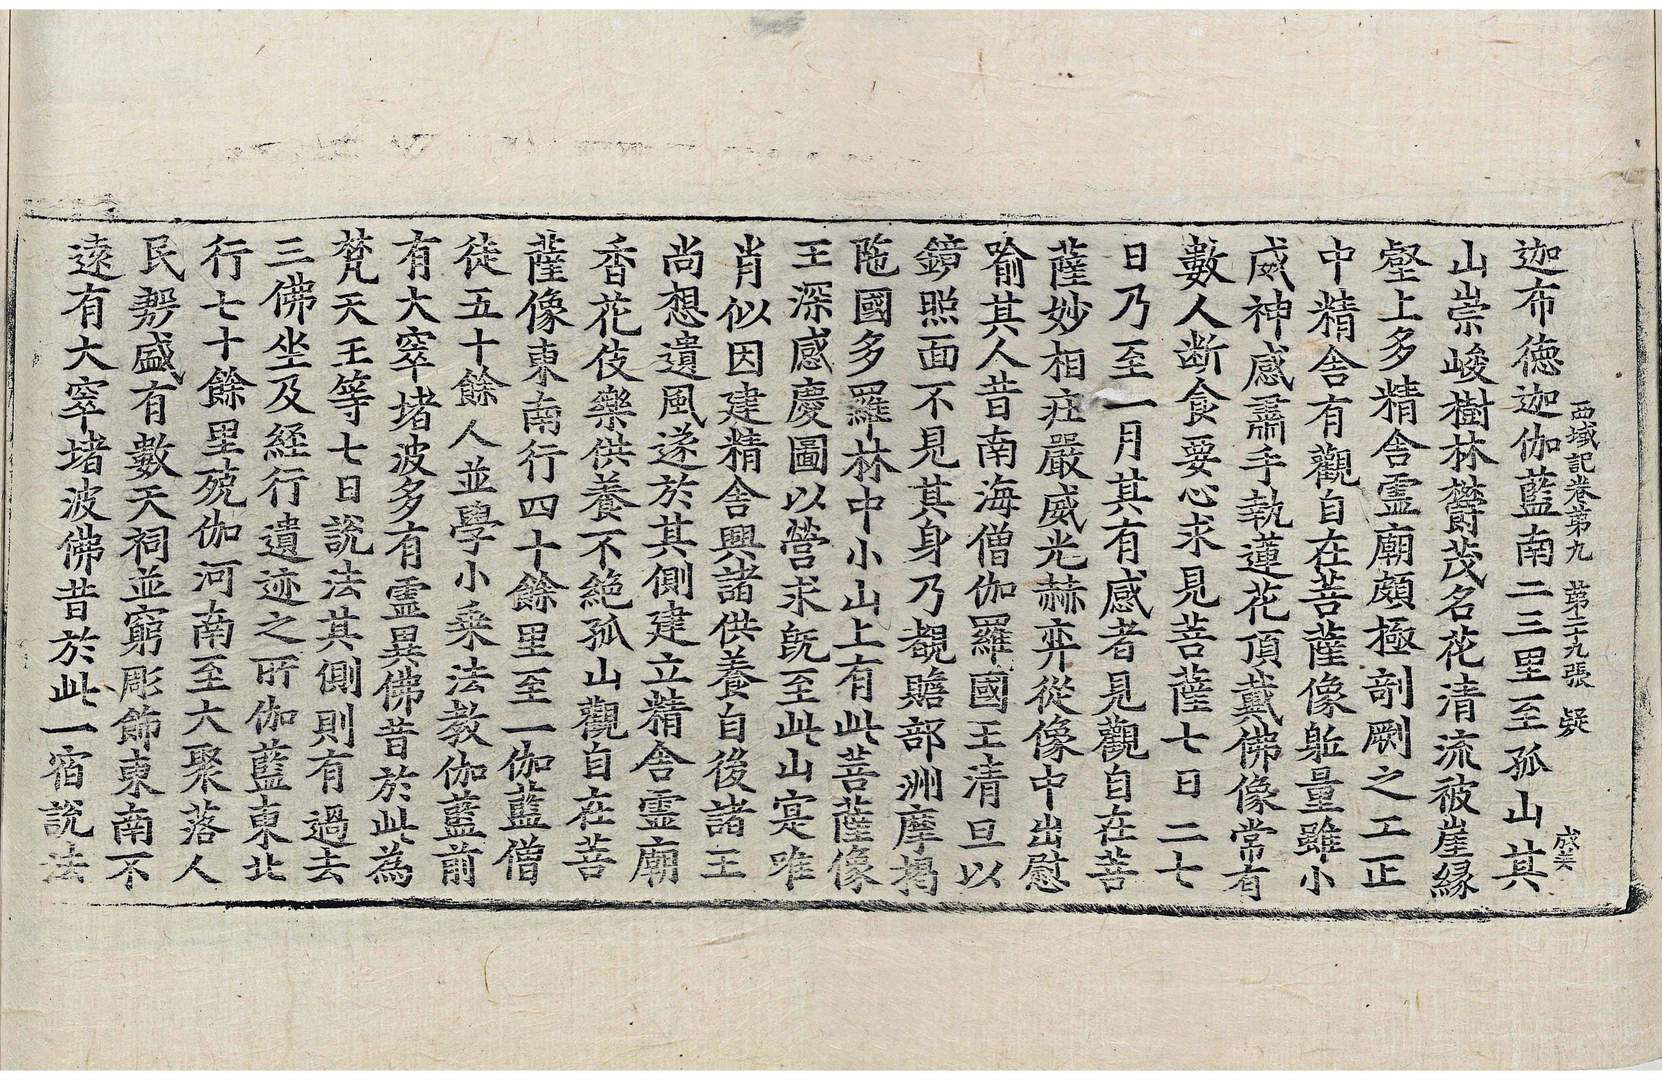 西域記卷第九 第二十九張 疑
成美
迦布德迦伽藍南二三里至孤山其
山崇峻樹林欝茂名花清流被崖緣
壑上多精舍霊廟頗極剞劂之工正
中精舍有觀自在菩薩像軀量雖小
威神感肅手執蓮花頂戴佛像常有
數人断食要心求見菩薩七日二七
日乃至一月其有感者見觀自在菩
薩妙相㽵嚴威光赫弈從像中出慰
喻其人昔南海僧伽羅國王清旦以
鏡照面不見其身乃覩贍部洲摩揭
陁國多羅林中小山上有此菩薩像
王深感慶圖以營求既至此山寔唯
肖似因建精舍興諸供養自後諸王
尚想遺風遂於其側建立精舍霊廟
香花伎樂供養不絶孤山觀自在菩
薩像東南行四十餘里至一伽藍僧
徒五十餘人並學小乗法教伽藍前
有大窣堵波多有霊異佛昔於此為
梵天王等七日說法其側則有過去
三佛坐及経行遺迹之所伽藍東北
行七十餘里殑伽河南至大聚落人
民㔟盛有數天祠並窮彫飾東南不
遠有大窣堵波佛昔於此一宿說法